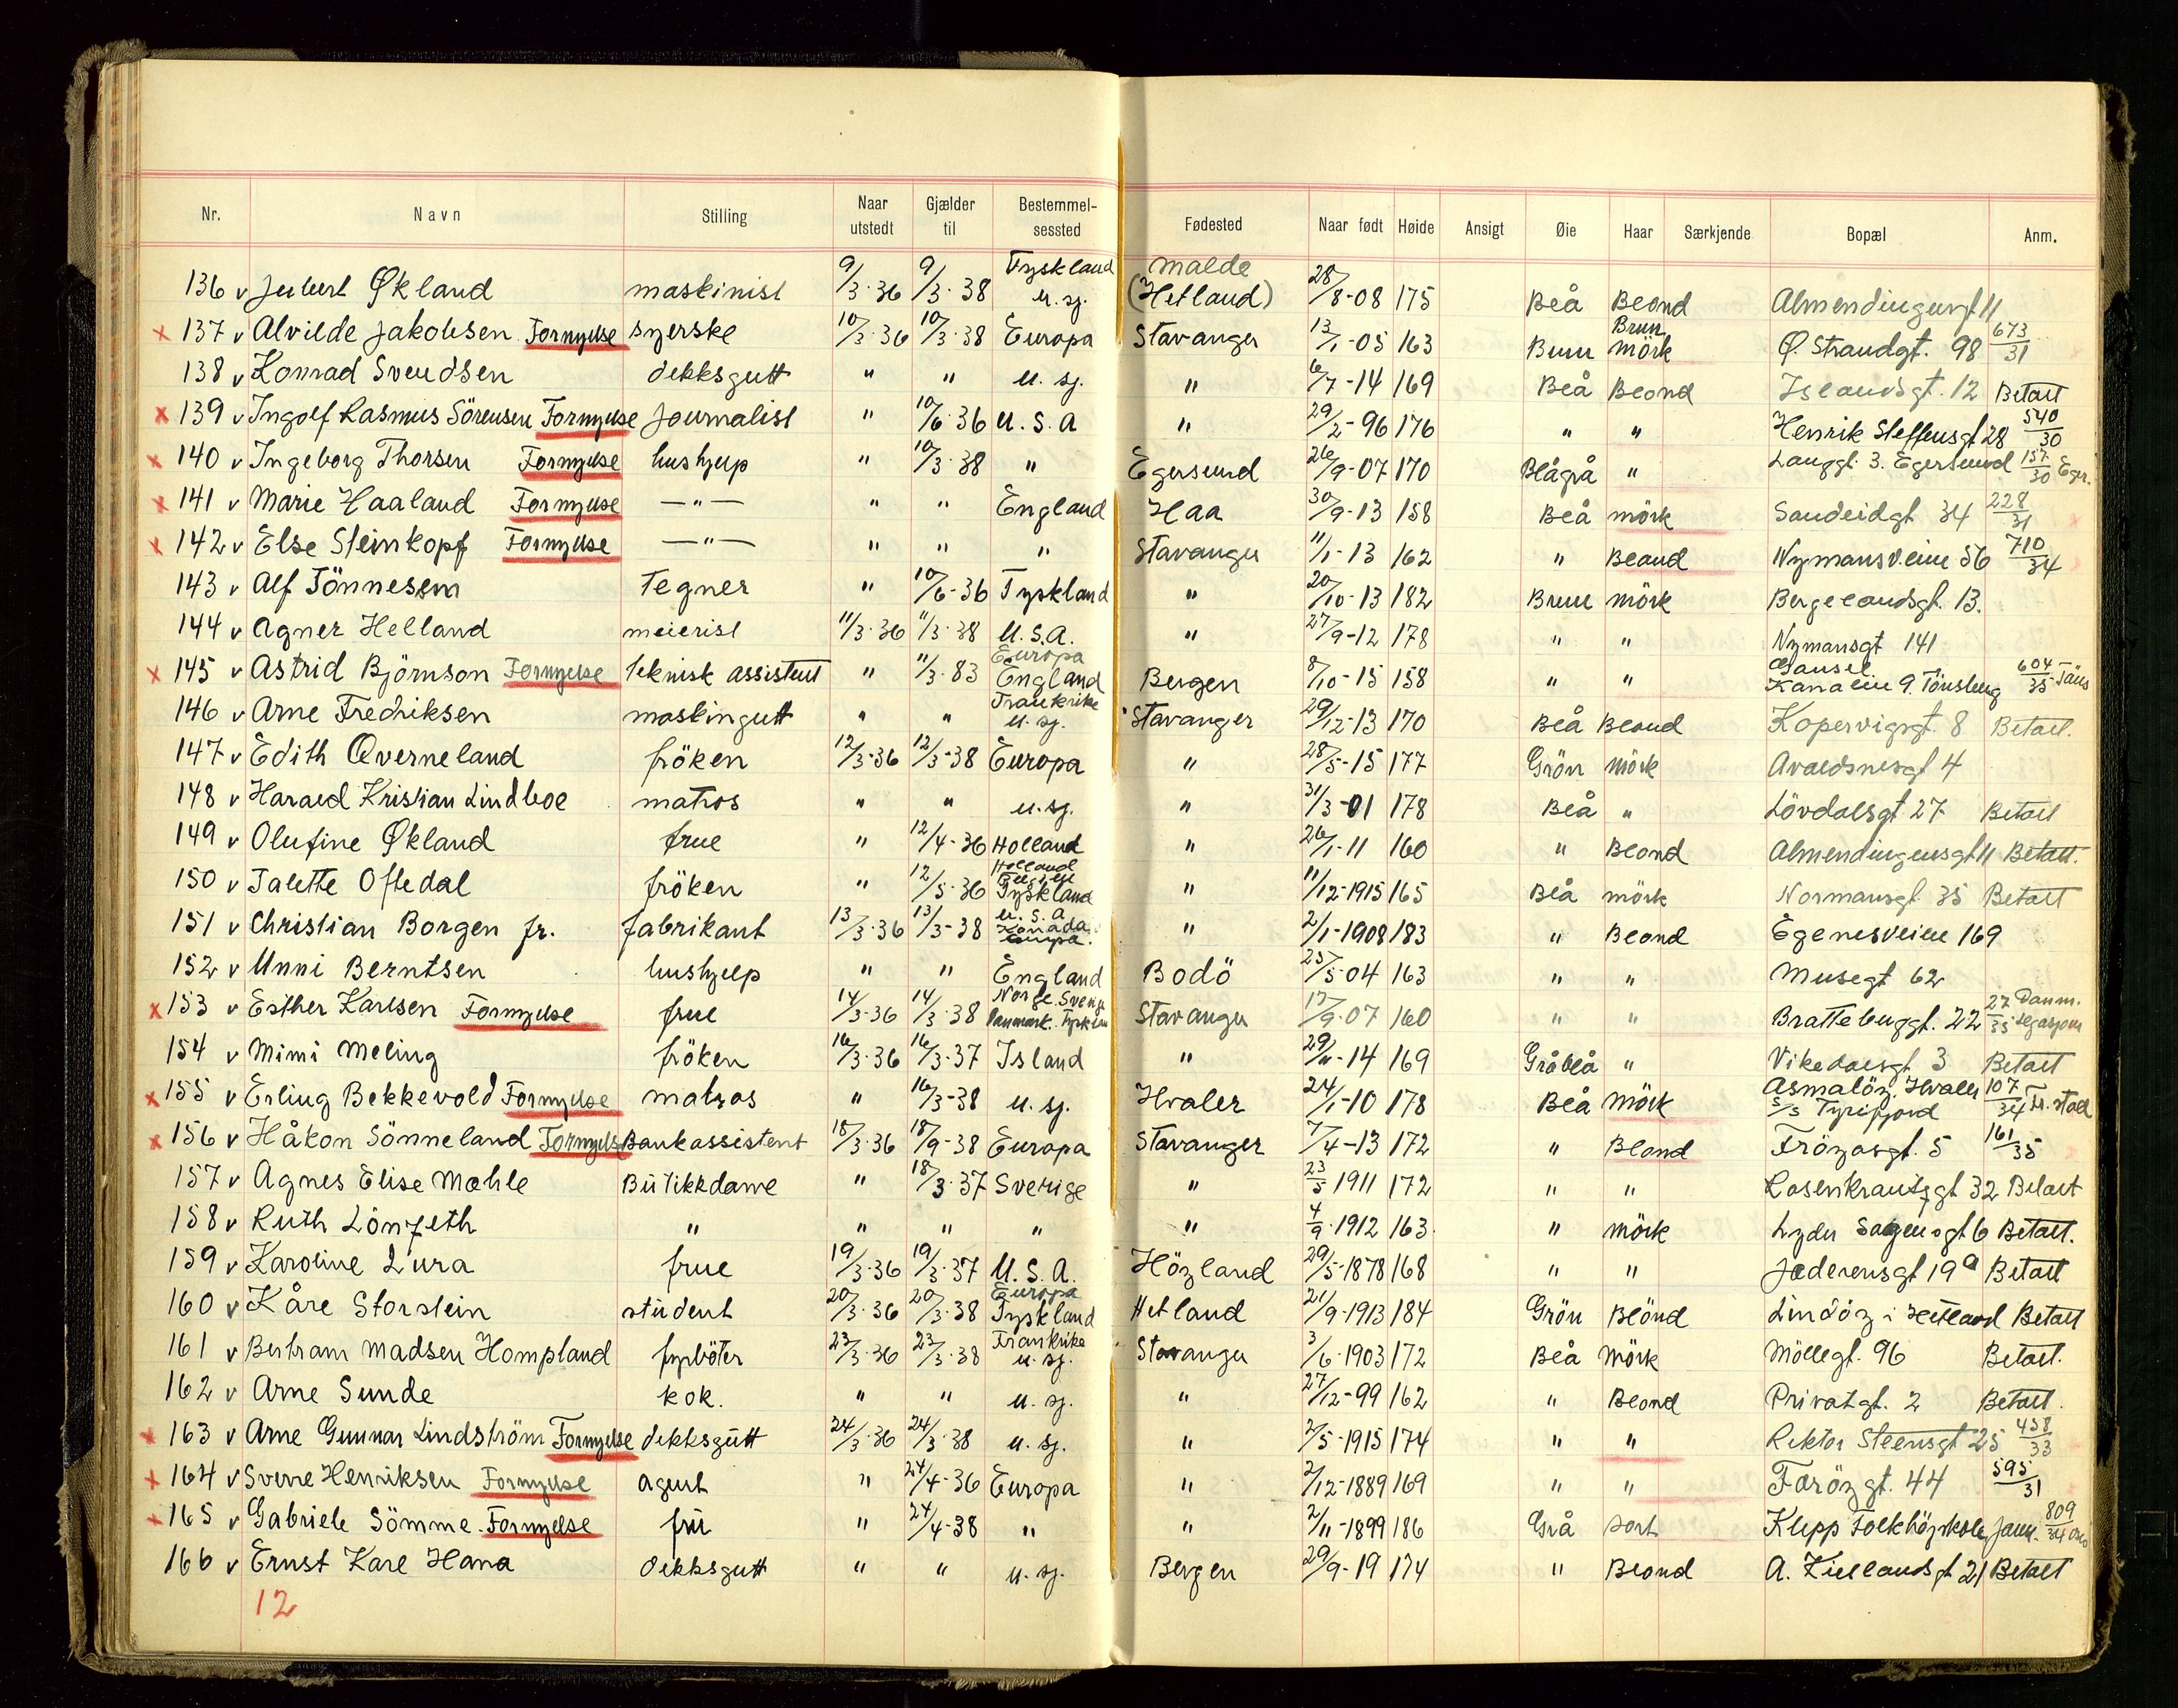 Nr. Navn Stilling Naar utstedt Gjælder til Bestemmelsessted Fødested Naar født Høide Ansigt Øie Haar Særkjende Bopæl Anm.
136 v Økland maskinist 9/3-36 9/3-38 Tyskland u. sj. Malde (Hetland) 28/8-08 175 Blå Blond 11
x 137 v Alvilde Jakobsen Fornyelse syerske 10/3-36 10/3-38 Europa Stavanger 13/1-05 163 Brun Brun mörk Ø. Strandgt. 98 673/31
138 v Konrad Svendsen dekksgutt " " u. sj. " 6/7-14 169 Blå Blond Islandsgt. 12 Betalt
x 139 v Ingolf Rasmus Sörensen Fornyelse Journalist " 10/6-36 U.S.A " 29/2-96 176 " " Henrik Steffensgt 28 540/30
x 140 v Ingeborg Thorsen Fornyelse hushjelp " 10/3-38 " Egersund 26/9-07 170 Blågrå " Langgt. 3. Egersund 157/30 Eger.
x 141 v Marie Haaland Fornyelse —"— " " England Haa 30/9-13 158 Blå mörk Sandeidgt 34 228/31
x 142 v Else Steinkopf Fornyelse —"— " " " Stavanger 11/1-13 162 " Bland Nymansveien 56 710/34
143 v Alf Tönnesen Tegner " 10/6-36 Tyskland " 20/10-13 182 Brun mörk Bergelandsgt. 13.
144 v Agner Helland meierist 11/3-36 11/3-38 U.S.A. " 27/9-12 178 " " Nymansgt 141
x 145 v Astrid Björnson Fornyelse teknisk assistent " 11/3-83 Europa England Bergen 8/10-15 158 " " Gausel Kanalein 9. Tönsberg 604/35
146 v Arne Fredriksen maskingutt " " Frankrike u. sj. Stavanger 29/12-13 170 Blå Blond Kopervigsgt. 8 Betalt.
147 v Edith Qverneland fröken 12/3-36 12/3-38 Europa " 28/5-15 177 Grön mörk Avaldsnesgt 4
148 v Harald Kristian Lindboe matros " " u. sj. " 31/3-01 178 Blå " Lövdalsgt 27 Betalt
149 v Olufine Økland frue " 12/4-36 Holland " 26/1-11 160 " Blond Almendingensgt 11 Betalt.
150 v Talette Oftedal fröken " 12/5-36 Holland Belgien Tyskland " 11/12-1915 165 Blå mörk Normansgt 35 Betalt
151 v Christian Borgen jr. fabrikant 13/3-36 13/3-38 U.S.A Kanada Europa. " 2/1-1908 183 " Blond Egenesveien 169
152 v Unni Berntsen hushjelp " " England Bodö 25/5-04 163 " " Musegt 62
x 153 v Esther Karlsen Fornyelse frue 14/3-36 14/3-38 Norge. Sverige Danmark. Tyskland Stavanger 17/9-07 160 " " Brattebuggt. 22 27/35 Danm. legasjon
154 v Mimi Meling fröken 16/3-36 16/3-37 Island " 29/11-14 169 Gråblå " Vikedalsgt 3 Betalt
x 155 v Erling Bekkevold Fornyelse matros " 16/3-38 u. sj. Hvaler 24/1-10 178 Blå Mörk Asmalöy. Hvaler s/s Tyrifjord 107/34 Fr. stad
x 156 v Håkon Sönneland Fornyelse Bankassistent 18/3-36 18/9-38 Europa Stavanger 7/4-13 172 " Blond Fröyasgt. 5 161/35
157 v Agnes Elise Mæhle Butikkdame " 18/3-37 Sverige " 23/5 1911 172 " " Rosenkrantzgt 32 Betalt
158 v Ruth Lönzeth " " " " " 4/9-1912 163. " Mörk Lyder Sagensgt 6 Betalt.
159 v Karoline Lura frue 19/3-36 19/3-37 U.S.A. Höyland 29/5-1878 168 " " Jæderensgt 19 a Betalt
160 v Kåre Storstein student 20/3-36 20/3-38 Europa Tyskland Hetland 21/9-1913 184 Grön Blond Lindöy i Hetland Betalt
161 v Bertram Madsen Hompland fyrböter 23/3-36 23/3-38 Frankrike u. sj. Stavanger 3/6-1903 172 Blå Mörk Möllegt. 96 Betalt.
162 v Arne Sunde kok. " " u. sj. " 27/12-99 162 " Blond Privatgt. 2 Betalt.
x 163 v Arne Gunnar Lindström Fornyelse dekksgutt 24/3-36 24/3-38 u. sj. " 2/5-1915 174 " " Rektor Steensgt 25 458/33
x 164 v Sverre Henriksen Fornyelse agent " 24/4-36 Europa " 2/12-1889 169 " " Færöygt. 44 595/31
x 165 v Gabriele Sömme. Fornyelse fru " 24/4-38 " " 2/11-1899 186 Grå sort Klepp Folkhöjskole Jæren. 809/34
166 v Ernst Karl Hana dekksgutt " " u. sj. Bergen 29/9-19 174 " Blond A. Kiellandsgt 21 Betalt
12